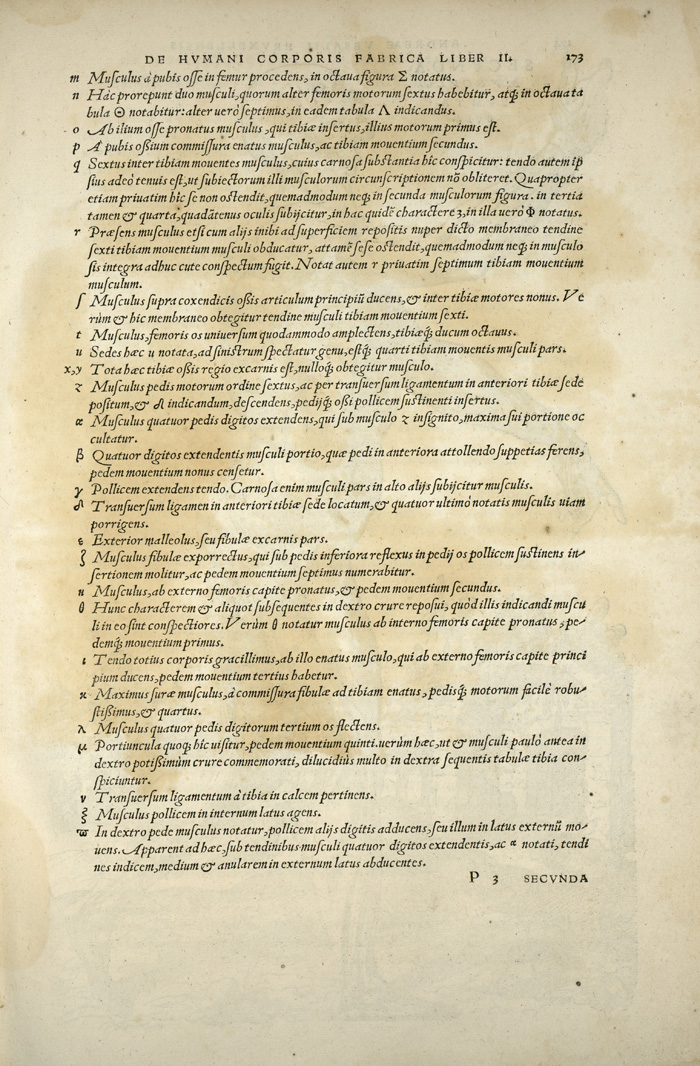 DE HVMANI CORPORIS FABRICA LIBER II. 173
m Musculus à pubis osse in femur procedens, in octaua figura Σ notatus.
n Hàc prorepunt duo musculi, quorum alter femoris motorum sextus habebitur, atq́; in octaua ta
bula Θ notabitur: alter uerò septimus, in eadem tabula Λ indicandus.
o Ab ilium osse pronatus musculus, qui tibiæ insertus, illius motorum primus est.
p A pubis oßium commissura enatus musculus, ac tibiam mouentium secundus.
q Sextus inter tibiam mouentes musculus, cuius carnosa substantia hic conspicitur: tendo autem ip
sius adeò tenuis est, ut subiectorum illi musculorum circunscriptionem nō obliteret. Quapropter
etiam priuatim hic se non ostendit, quemadmodum neq; in secunda musculorum figura. in tertia
tamen & quarta, quadātenus oculis subijcitur, in hac quidē charactere 3, in illa uerò Φ notatus.
r Præsens musculus etsi cum alijs inibi ad superficiem repositis nuper dicto membraneo tendine
sexti tibiam mouentium musculi obducatur, attamē sese ostendit, quemadmodum neq; in musculo
sis integra adhuc cute conspectum fugit. Notat autem r priuatim septimum tibiam mouentium
musculum.
ſ Musculus supra coxendicis oßis articulum principiū ducens, & inter tibiæ motores nonus. Ve
rùm & hic membraneo obtegitur tendine musculi tibiam mouentium sexti.
t Musculus, femoris os uniuersum quodammodo amplectens, tibiæq́; ducum octauus.
u Sedes hæc u notata, ad sinistrum spectatur genu, estq́; quarti tibiam mouentis musculi pars.
x, y Tota hæc tibiæ oßis regio excarnis est, nulloq́; obtegitur musculo.
z Musculus pedis motorum ordine sextus, ac per transuersum ligamentum in anteriori tibiæ sede
positum, & δ indicandum, descendens, pedijq́; oßi pollicem sustinenti insertus.
α Musculus quatuor pedis digitos extendens, qui sub musculo z insignito, maxima sui portione oc
cultatur.
β Quatuor digitos extendentis musculi portio, quæ pedi in anteriora attollendo suppetias ferens,
pedem mouentium nonus censetur.
γ Pollicem extendens tendo. Carnosa enim musculi pars in alto alijs subijcitur musculis.
δ Transuersum ligamen in anteriori tibiæ sede locatum, & quatuor ultimò notatis musculis uiam
porrigens.
ε Exterior malleolus, seu fibulæ excarnis pars.
ζ Musculus fibulæ exporrectus, qui sub pedis inferiora reflexus in pedij os pollicem sustinens in-
sertionem molitur, ac pedem mouentium septimus numerabitur.
η Musculus, ab externo femoris capite pronatus, & pedem mouentium secundus.
θ Hunc characterem & aliquot subsequentes in dextro crure reposui, quòd illis indicandi muscu
li in eo sint conspectiores. Verùm θ notatur musculus ab interno femoris capite pronatus, pe-
demq́; mouentium primus.
ι Tendo totius corporis gracillimus, ab illo enatus musculo, qui ab externo femoris capite princi
pium ducens, pedem mouentium tertius habetur.
κ Maximus suræ musculus, à commissura fibulæ ad tibiam enatus, pedisq́; motorum facilè robu-
stißimus, & quartus.
λ Musculus quatuor pedis digitorum tertium os flectens.
μ Portiuncula quoq; hic uisitur, pedem mouentium quinti. uerùm hæc, ut & musculi paulò antea in
dextro potißimùm crure commemorati, dilucidiùs multo in dextra sequentis tabulæ tibia con-
spiciuntur.
ν Transuersum ligamentum à tibia in calcem pertinens.
ξ Musculus pollicem in internum latus agens.
ϖ In dextro pede musculus notatur, pollicem alijs digitis adducens, seu illum in latus externū mo-
uens. Apparent ad hæc, sub tendinibus musculi quatuor digitos extendentis, ac α notati, tendi
nes indicem, medium & anularem in externum latus abducentes.
P 3 SECVNDA